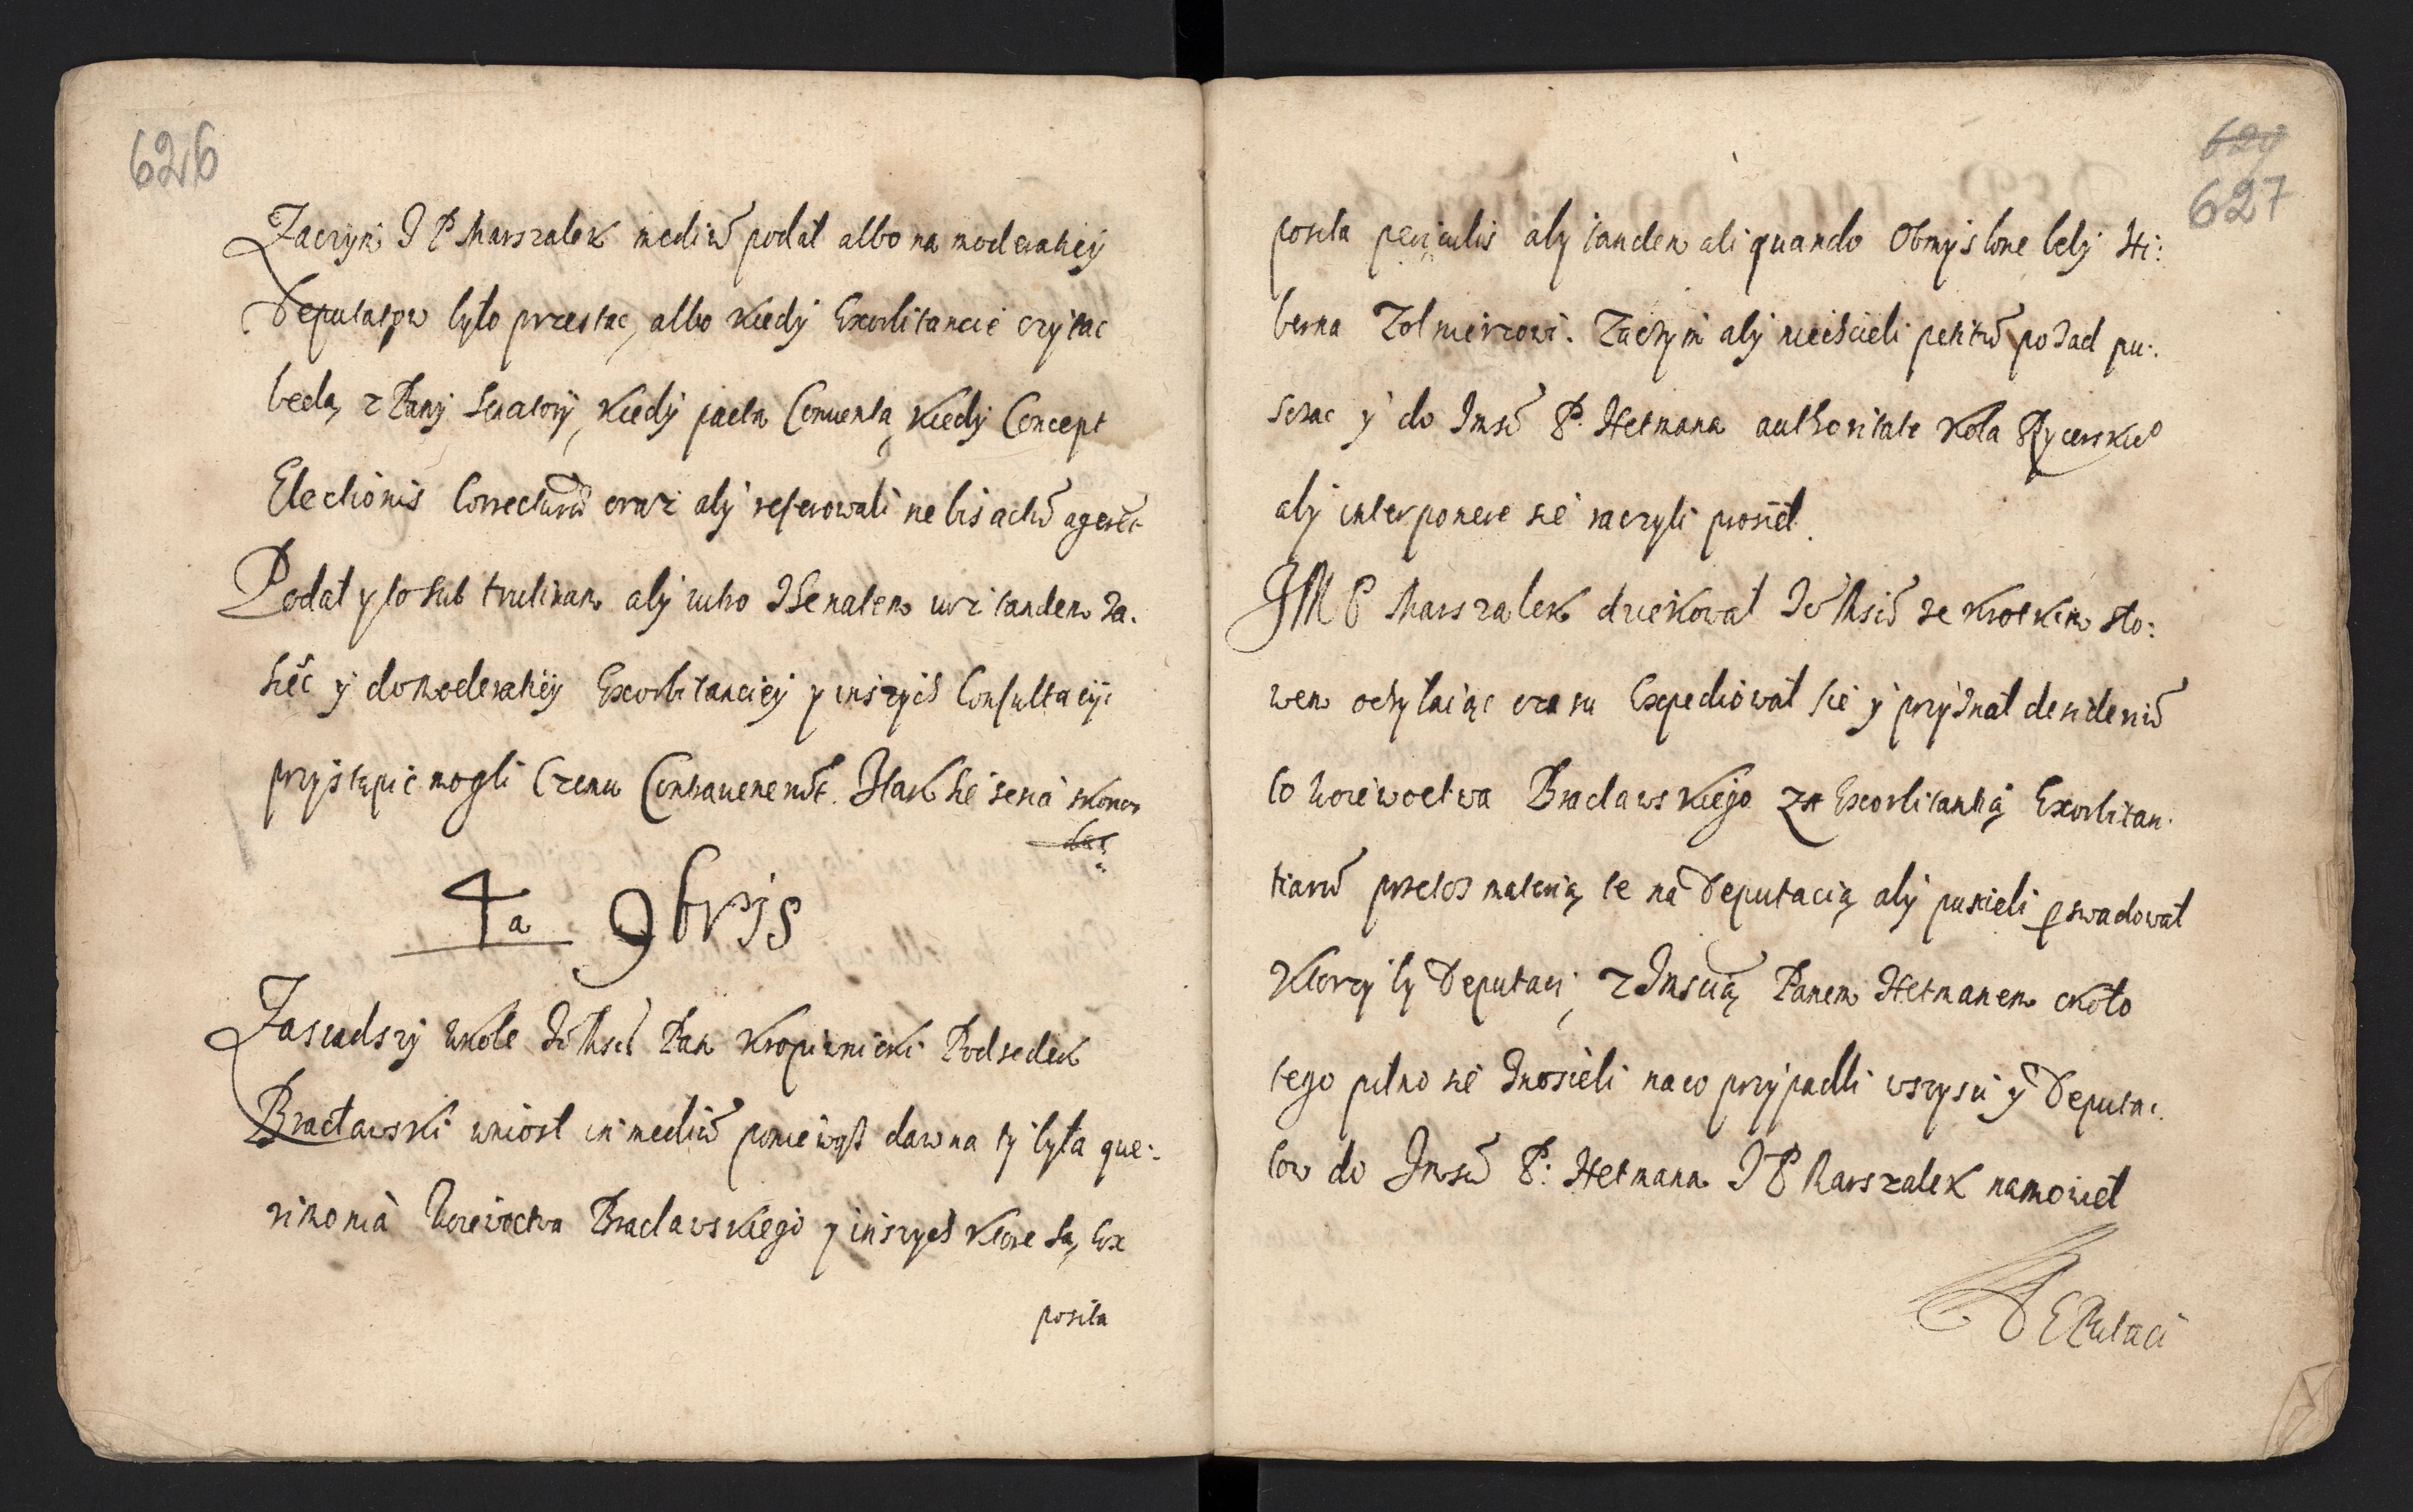 626
Zaczym J P Marszałek mediũ podał albo na moderatiey
Deputatow było przestac, albo kiedy Exorbitancie czytac
będą z Pany Senatory, kiedy pacta Conventa, kiedy Concept
Electionis Correcturũ oraz aby referowali ne bis actũ ageret
Podał y to sub trutinam aby iutro Senatem iuz tandem Za.
sięc y do moderatiey Exorbitanciey y inszych Consultacyi
przystąpic mogli Czemu Contravenerũt. Itak się sesia skonc
4a 9bris
Zasiadszy wkole Jo Msć Pan Kropiwnicki Podsedek
Bracławski wniosł in mediũ poniewasz dawna ty była que:
rimonia Woiewoctwa Bracławskiego y inszych ktore są, Ex
posita
627
627
posita periculis aby tandem aliquando Obmyslone bely Hi:
berna Zolnierzowi. Zaczym aby niechcieli petitũ po Zad pu:
sczac y do Jmsci P. Hetmana authoritate Koła Rycerskieº
aby interponere sie raczyli prosieł.
JM P Marszalek dziekował Jo Msci ze krotkim sło:
wem ochylaiąc czasu Expediował sie y przyznał desideriũ
to Woiewoctwa Braclawskiego za Exorbitantią Exorbitan:
tiarũ przetoz materią te na Deputacią aby puscieli pswadował
Ktorzy by Deputaci, z Jmscią Panem Hetmanem około
tego pilno sie Znosieli na co przypadli wszyscy y Deputa:
tow do Jmsci P: Hetmana J P Marszalek namowieł
DEPutaci